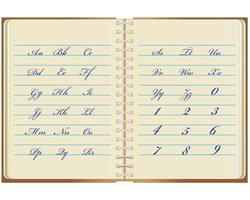 Aa Bb Cc
Dd Ee Ff
Gg Hh Ii
Jj Kk Ll
Mm Nn Oo
Pp Qq Rr
Ss Tt Uu
Vv Ww Xx
Yy Zz 0
1 2 3
4 5 6
7 8 9